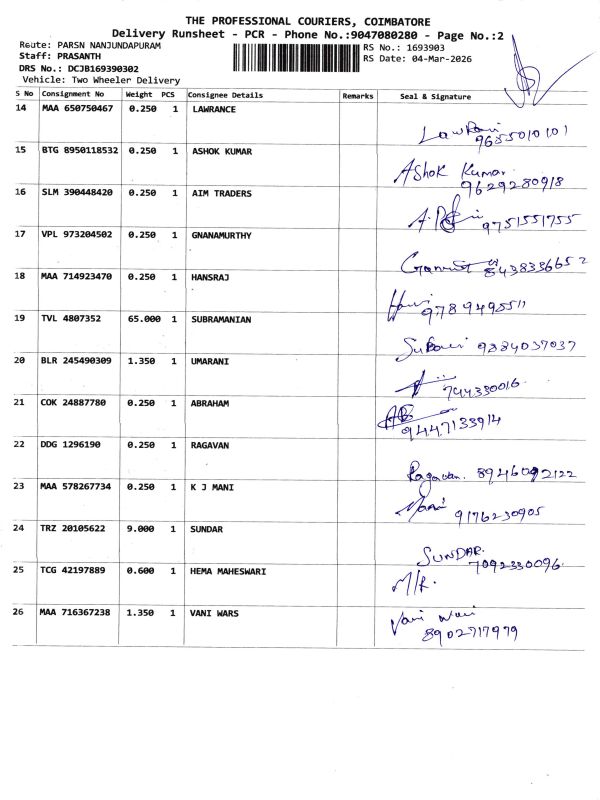 THE PROFESSIONAL COURIERS, COIMBATORE
Delivery Runsheet - PCR - Phone No.:9047080280 - Page No.:2
Route: PARSN NANJUNDAPURAM
Staff: PRASANTH
DRS No.: DCJB169390302
Vehicle: Two Wheeler Delivery
RS No.: 1693903
RS Date: 04-Mar-2026
S No Consignment No Weight PCS Consignee Details Remarks Seal & Signature
14 MAA 650750467 0.250 1 LAWRANCE
9655010101
15 BTG 8950118532 0.250 1 ASHOK KUMAR
Ashok Kumar
9629280918
16 SLM 390448420 0.250 1 AIM TRADERS
9751551755
17 VPL 973204502 0.250 1 GNANAMURTHY
8438336652
18 MAA 714923470 0.250 1 HANSRAJ
9789498511
19 TVL 4807352 65.000 1 SUBRAMANIAN
9884037037
20 BLR 245490309 1.350 1 UMARANI
744330016
21 COK 24887780 0.250 1 ABRAHAM
9447133914
22 DDG 1296190 0.250 1 RAGAVAN
Ragavan. 8946092122
23 MAA 578267734 0.250 1 K J MANI
Mani 9176230905
24 TRZ 20105622 9.000 1 SUNDAR
SUNDAR.
7092330096
25 TCG 42197889 0.600 1 HEMA MAHESWARI
M/R.
26 MAA 716367238 1.350 1 VANI WARS
Vani Wari
8902717979